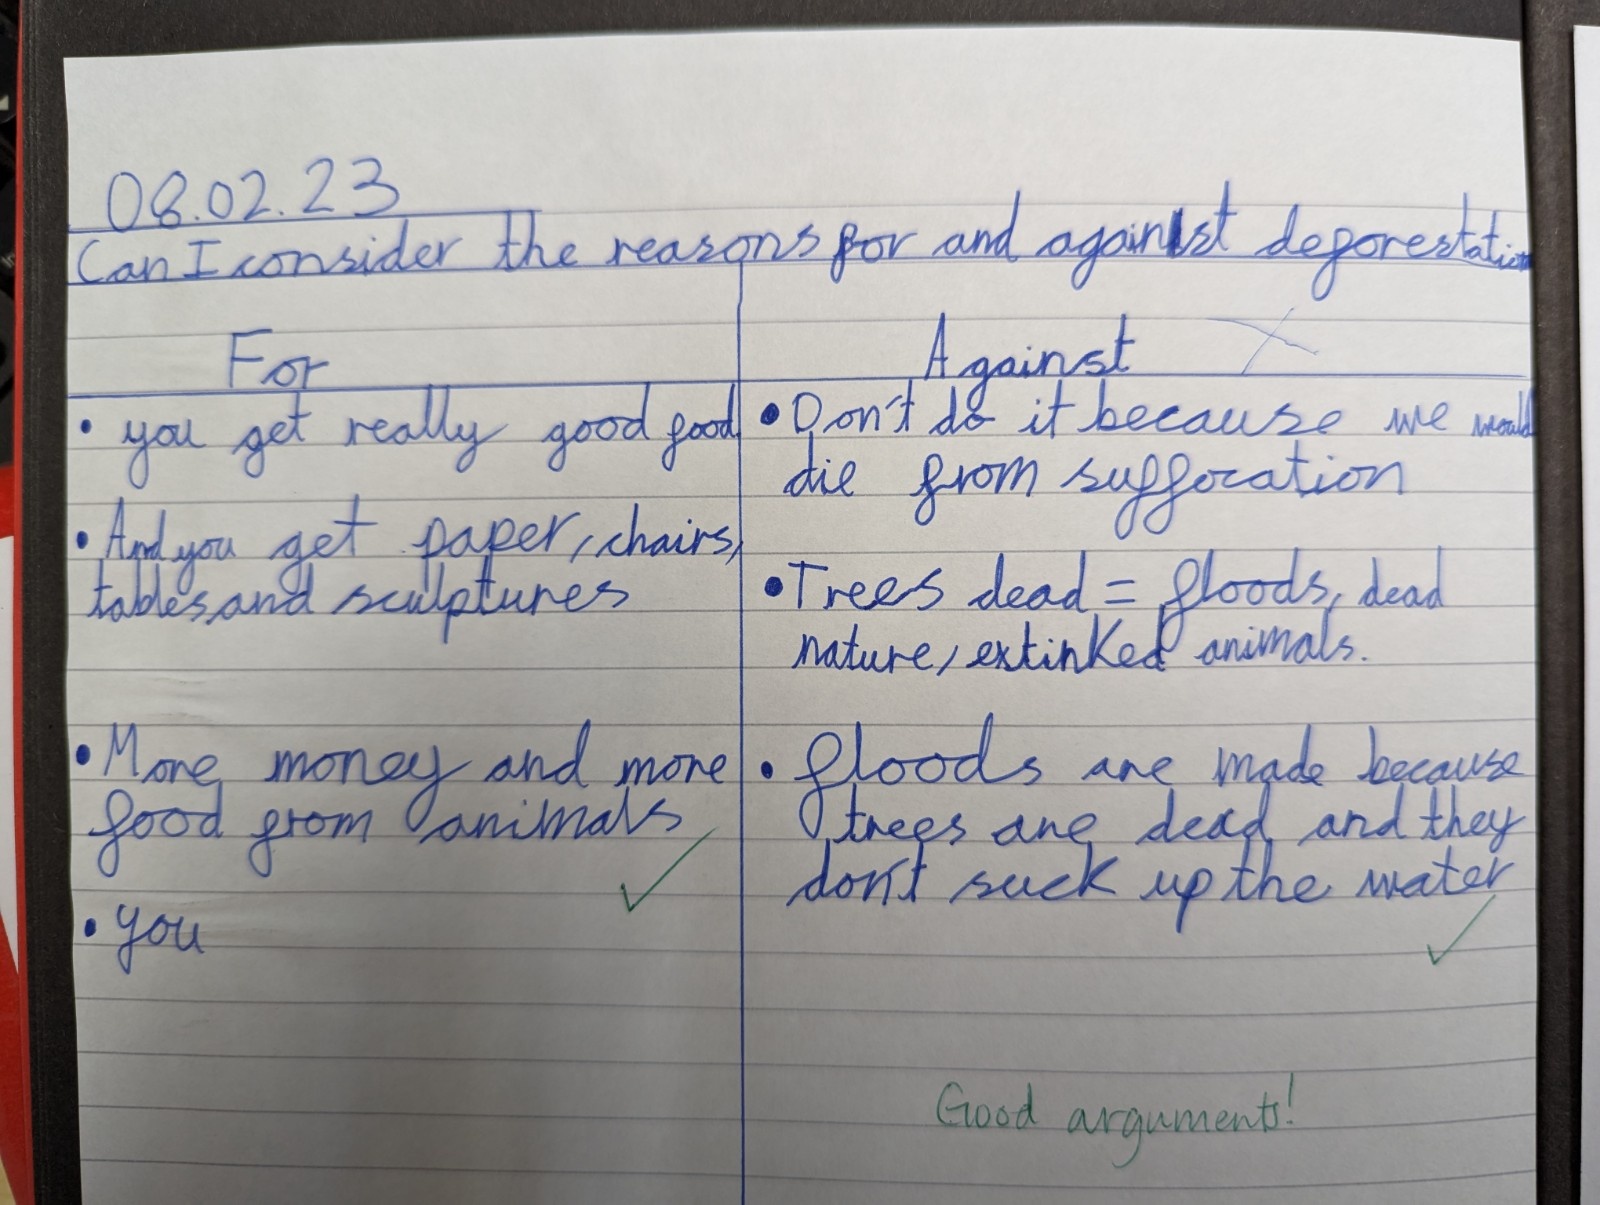 08.02.23
Can I consider the reasons for and against deforestation
For
• you get really good food
• And you get paper, chairs,
tables, and sculptures
• More money and more
food from animals
• you
Against
• Don't do it because we would
die from suffocation
• Trees dead = floods, dead
nature, extinked animals.
• floods are made because
trees are dead and they
don't suck up the water
Good arguments!